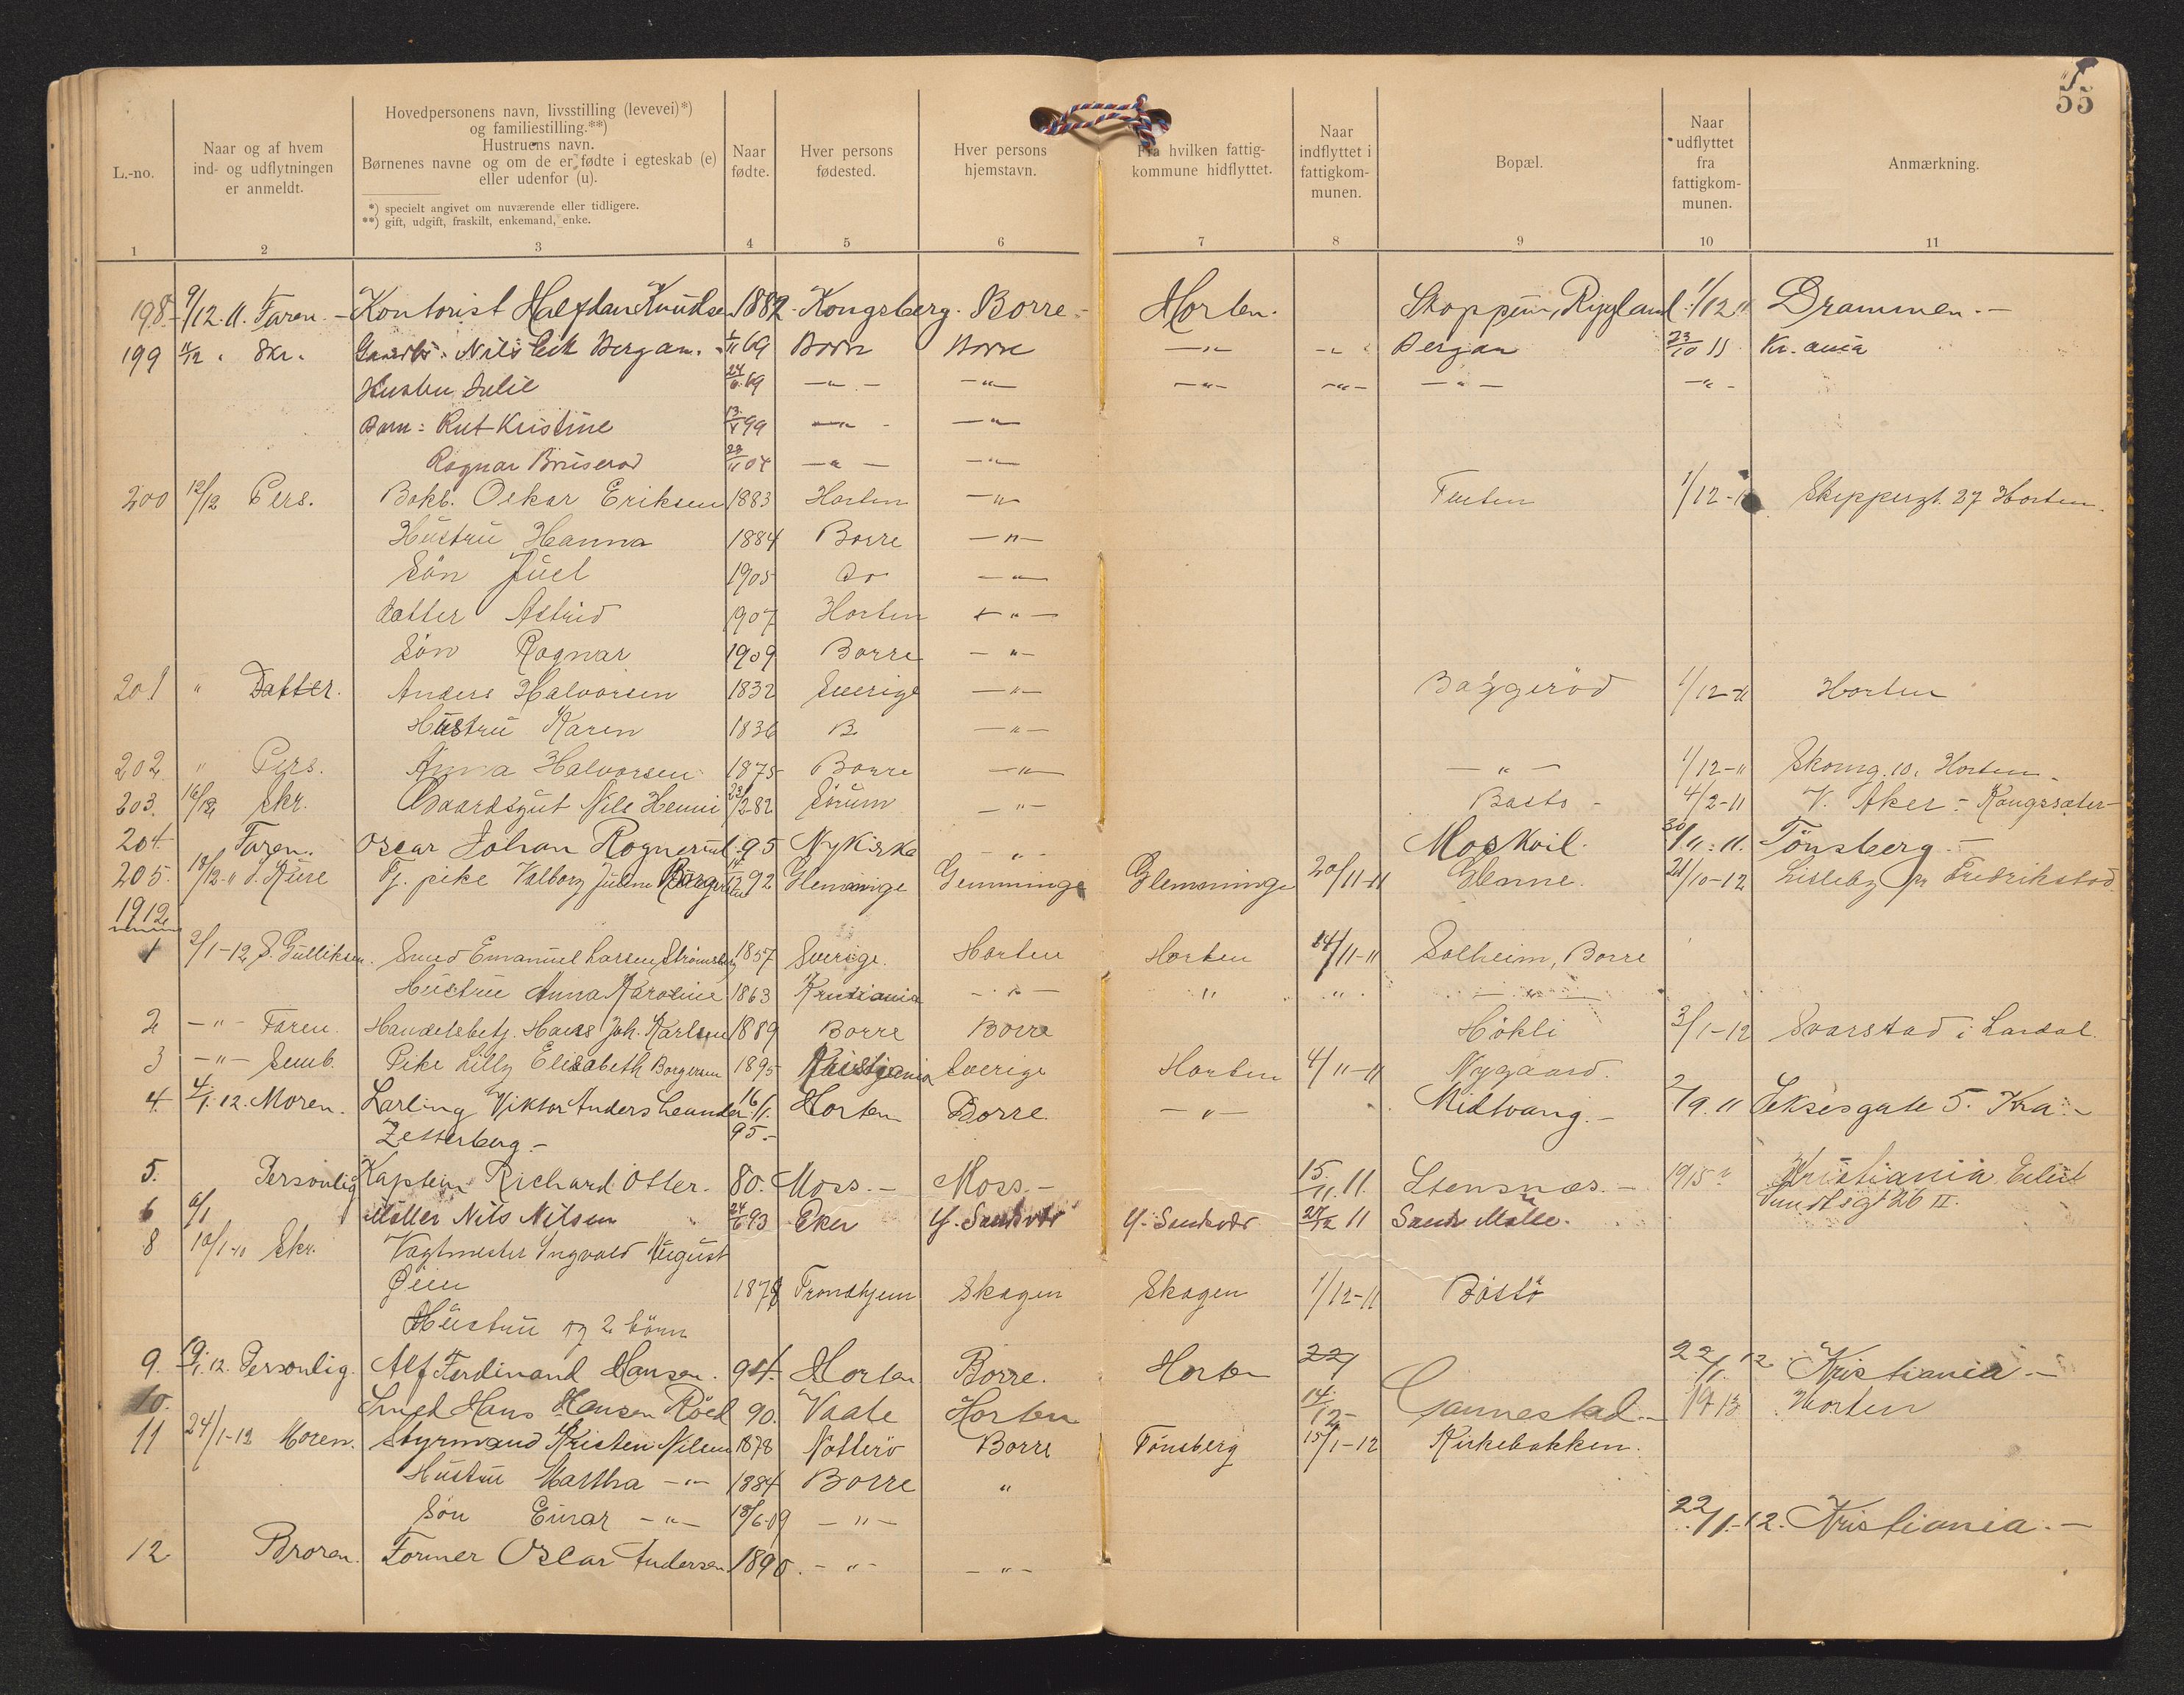 55
L.-no.
Naar og af hvem
ind- og udflytningen
er anmeldt.
Hovedpersonens navn, livsstilling (levevei)*)
og familiestilling.**)
Hustruens navn.
Børnenes navne og om de er fødte i egteskab (e)
eller udenfor (u).
*) specielt angivet om nuværende eller tidligere.
**) gift, udgift, fraskilt, enkemand, enke.
Naar
fødte.
Hver persons
fødested.
Hver persons
hjemstavn.
Fra hvilken fattig-
kommune hidflyttet.
Naar
indflyttet i
fattigkom-
munen.
Bopæl.
Naar
udflyttet
fra
fattigkom-
munen.
Anmærkning.
1 2 3 4 5 6 7 8 9 10 11
198. 9/12.11. Faren. Kontorist Halfdan Knudsen 1882. Kongsberg. Borre. Horten. Skoppum, Rygland 1/12 11 Drammen.
199 11/12 " Skr. Nils Eek Bergan. 1/11 69 Borre Borre -"- -"- Bergan 23/10 11 Kr. ania
Hustru Julie 24/6 69 -"- -"- -"- -"- -"- -"-
Barn: Rut Kristine 13/8 99 -"- -"-
Ragnar Bruserød 23/11 04 -"- -"-
200 12/12 Pers. Bokb. Oskar Eriksen 1883 Horten -"- Tuften 1/12- Skippergt. 27 Horten.
Hustru Hanna 1884 Borre -"-
Søn Juel 1905 Do -"-
Datter Astrid 1907 Horten -"-
Søn Ragnar 1909 Borre -"-
201 " Datter. Anders Halvorsen 1832 Sverige -"- Baggerød 1/12-11 Horten
Hustru Karen 1836 B. -"-
202 " Pers. Anna Halvorsen 1875 Borre -"- -"- 1/12-11 Skomg. 10, Horten.
203. 16/12 Skr. Gaardsgut Nils Henni 23/12-82 Sørum -"- Basto - 4/2-11 V. Aker - Kongssæter
204. Faren. Oscar Johan Rognerud. 95 Nykirke -"- Moskvil. 30/11.11. Tönsberg
205. 18/12-11 Tj. pike Valborg Juline 14/12 92 Glemminge Gemminge Glemminge 20/11-11 Glenne. 21/10-12 Lisleby pr Fredrikstad.
1912
1 2/1-12 S. Gulliksen. Smed Emanuel Larsen Strømsberg 1857 Sverige. Horten Horten 14/11-11 Solheim, Borre
Hustru Anna Karoline 1863 Kristiania -"- " " -"-
2 -"- Faren. Handelsbetj. Hans Joh. Karlsen 1889 Borre Borre Hökli 3/1-12 Svarstad i Lardal.
3 -"- Semb. Pike Lilly Elisabeth Borgersen 1895 Kristiania Sverige Horten 4/11-11 Nygaard.
4. 4/1.12. Moren. Lærling Viktor Anders Leander 16/1. Horten Borre. -"- " Midtvang. 2/9.11 Seksesgate 5. Kra.
Zetterberg. 95.
5. Personlig Kaptein Richard Otter. 80. Moss. Moss. 15/11.11. Stensnæs. 1915? Kristiania Eilert
Sundtsgt 26 II.
6 6/1 Møller Nils Nilsen 24/6 93 Eker Y. Sandsvær Y. Sandsvær 27/12 11 Sande Mølle.
8 10/1-11 Skr. Vagtmester Ingvald August
Øien 1878 Trondhjem Skagen Skagen 1/12-11 Bastø
Hustru og 2 börn
9. 19/1.12. Personlig. Alf Ferdinand Hansen. 94. Horten Borre. Horten 22/1 22/1.12. Kristiania
10. Smed Hans Hansen Röed 90. Vaale Horten 14/12- Gannestad. 1913 Horten
11 24/1-12 Moren. Styrmand Kristen Nilsen 1878 Nøtterø Borre Tönsberg 15/1-12 Kirkebakken.
Hustru Martha -"- 1884 Borre "
Søn Einar -"- 18/6-09 -"-
22/1.-12. Kristiania.
12 Broren. Former Oscar Andersen 1890. -"- -"-